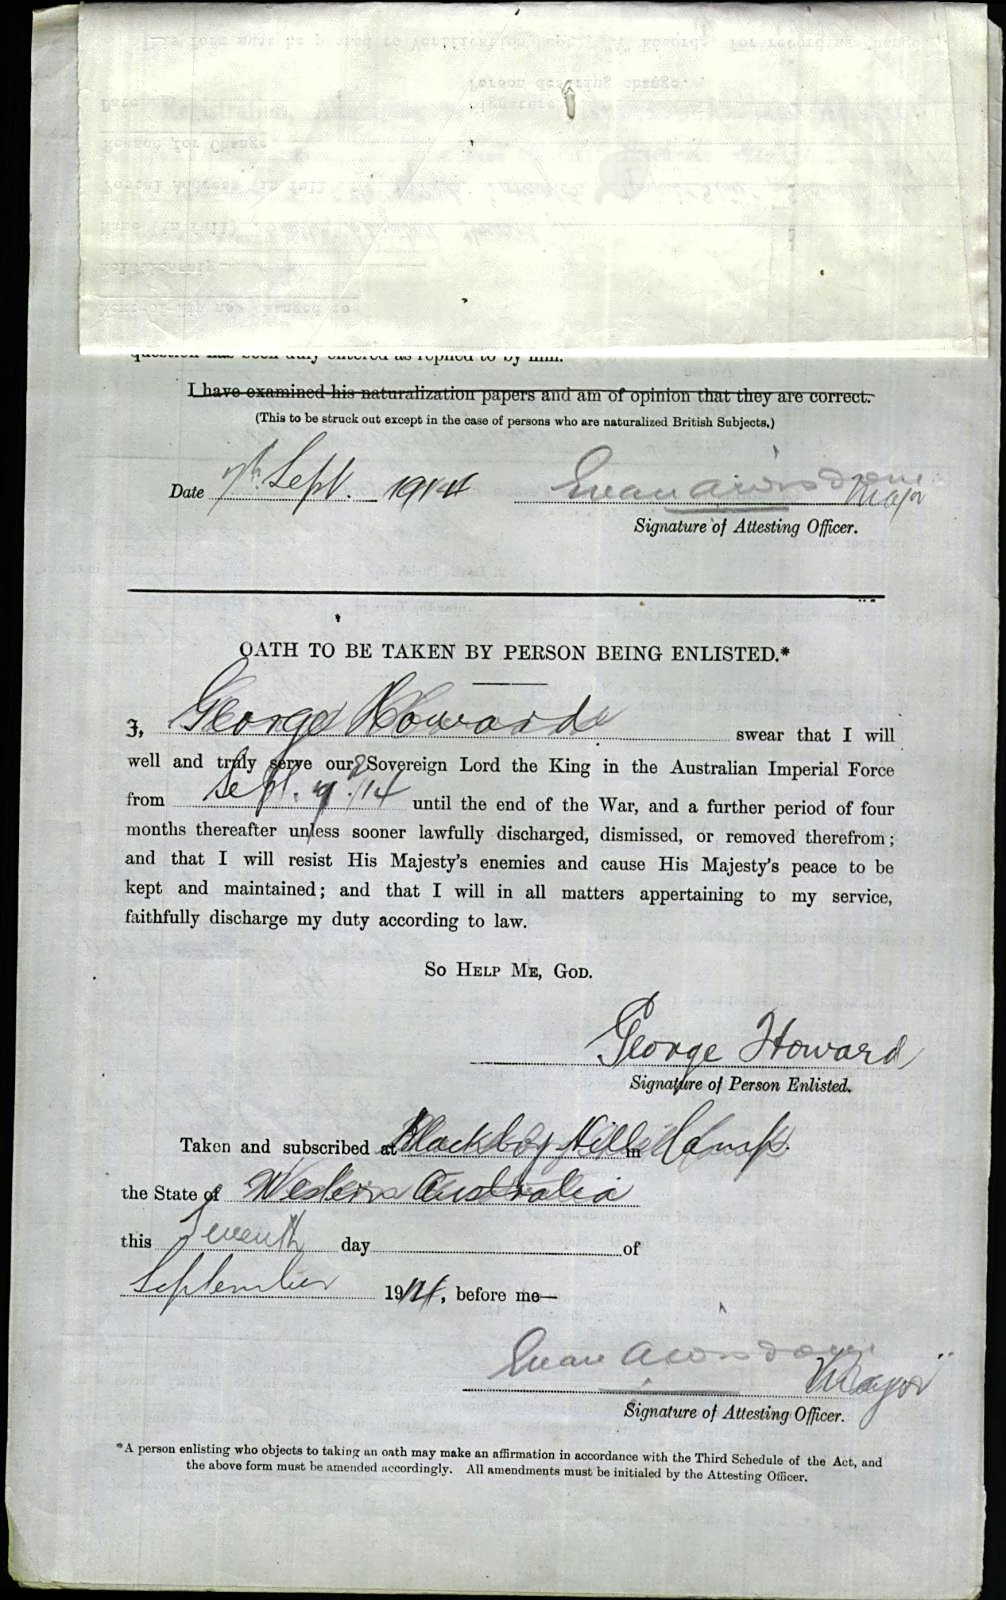 question has been duly entered as replied to by him.
I have examined his naturalization papers and am of opinion that they are correct.
(This to be struck out except in the case of persons who are naturalized British Subjects.)
Date 7th Sept. 1914 Evan A Wisdom Major
Signature of Attesting Officer.
OATH TO BE TAKEN BY PERSON BEING ENLISTED.*
I, George Howard swear that I will
well and truly serve our Sovereign Lord the King in the Australian Imperial Force
from Sept. 7th/14 until the end of the War, and a further period of four
months thereafter unless sooner lawfully discharged, dismissed, or removed therefrom;
and that I will resist His Majesty's enemies and cause His Majesty's peace to be
kept and maintained; and that I will in all matters appertaining to my service,
faithfully discharge my duty according to law.
SO HELP ME, GOD.
George Howard
Signature of Person Enlisted.
Taken and subscribed at Blackboy Hill Camp in
the State of Western Australia
this Seventh day of
September 1914, before me—
Evan A Wisdom Major
Signature of Attesting Officer.
*A person enlisting who objects to taking an oath may make an affirmation in accordance with the Third Schedule of the Act, and
the above form must be amended accordingly. All amendments must be initialed by the Attesting Officer.